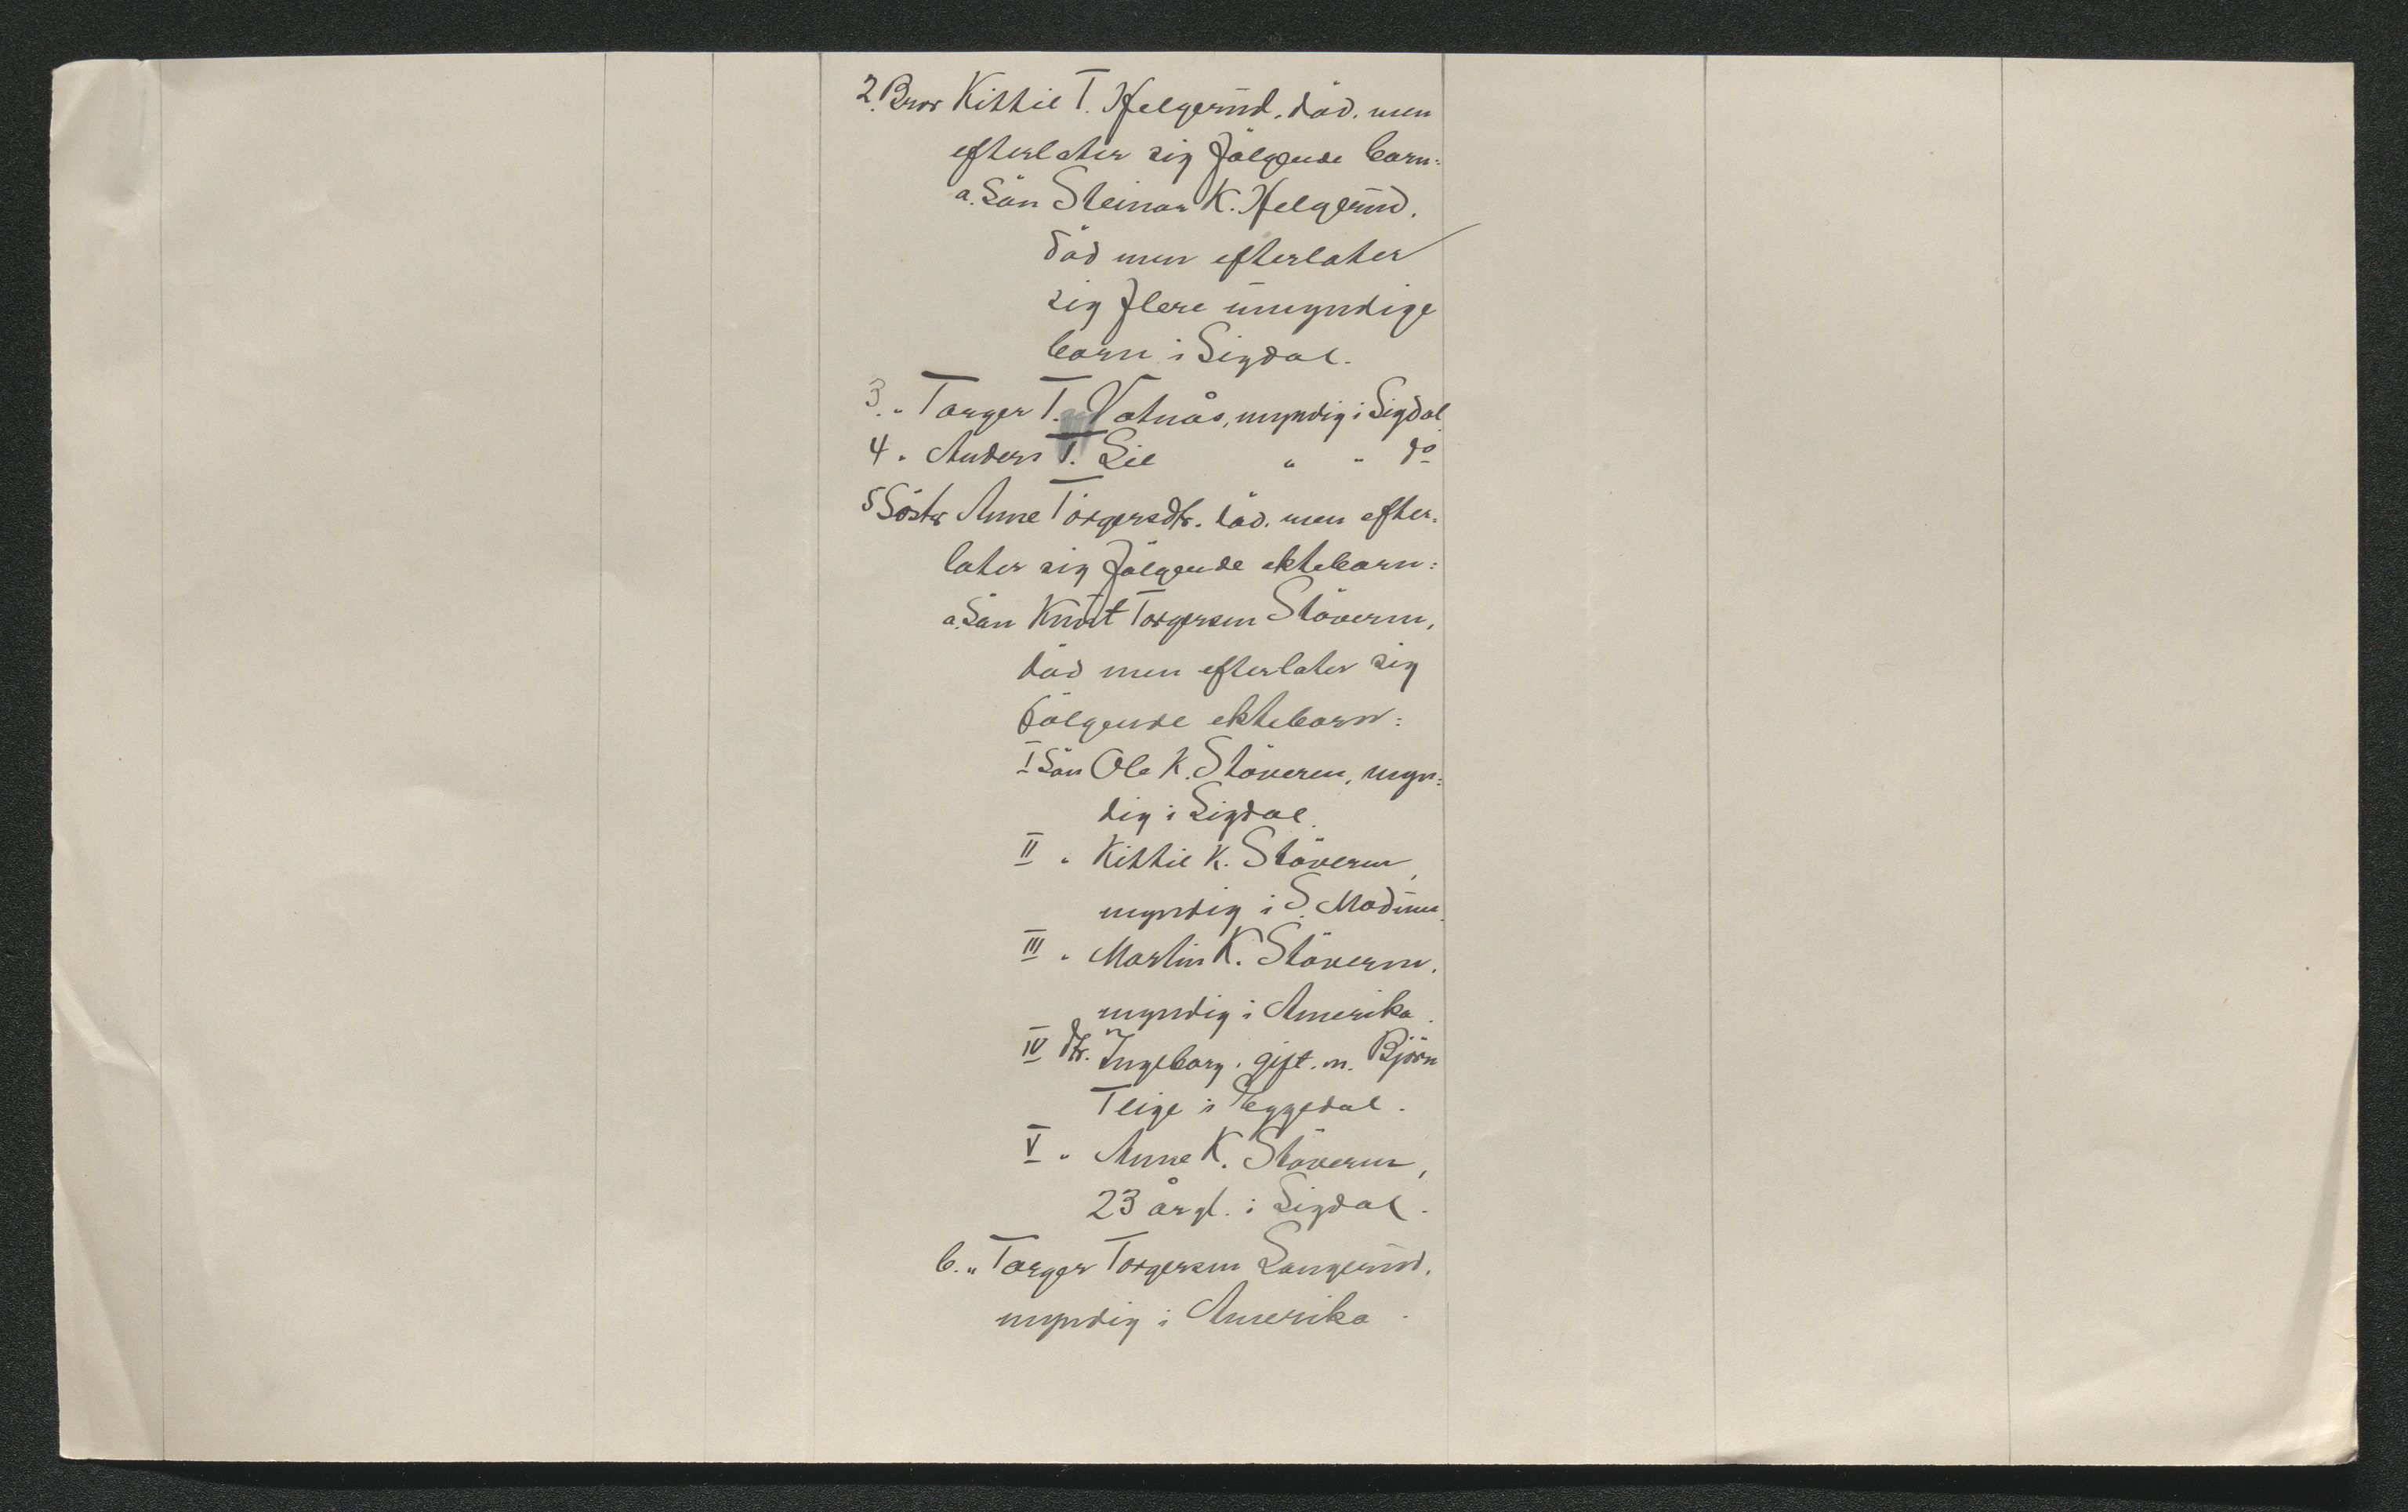 2. Bror Kittil T. Helgerud, död, men
efterlater sig fölgende barn:
a. Sön Steinar K. Helgerud,
död men efterlater
sig flere umyndige
barn i Sigdal.
3. " Torger T. Vatnås, myndig i Sigdal
4. " Anders T. Lie " " do
5 Söster Anne Torgersdtr. död, men efter-
later sig fölgende ektebarn:
a. Sön Knut Torgersen Stöveren,
död men efterlater sig
fölgende ektebarn:
I Sön Ole K. Stöveren, myn-
dig i Sigdal.
II " Kittil K. Stöveren,
myndig i S. Modum.
III " Martin K. Stöveren,
myndig i Amerika.
IV dtr. Ingeborg, gift m. Björn
Teige i Eggedal.
V " Anne K. Stöveren,
23 årgl. i Sigdal.
b. " Torger Torgersen Langerud,
myndig i Amerika.